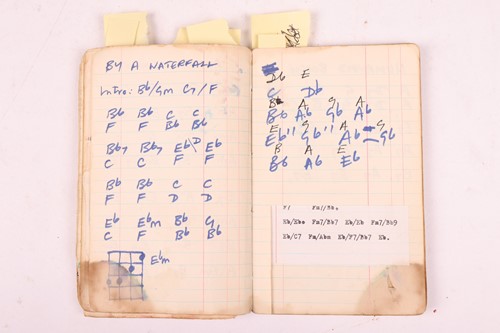 BY A WATERFALL
Intro: Bb/Gm C7/F
Bb Bb C C
F F Bb Bb
Bb7 Bb7 Eb D Eb
C C F F
Bb Bb C C
F F D D
Eb Ebm Bb G
C F Bb Bb
Ebm
Db E
C Db
Bb A G A
Bb Ab Gb Ab
E G A G
Eb11 Gb11 Ab Gb
B A E
Bb Ab Eb
F7 Fm//Bb.
Eb/Ebo Fm7/Bb7 Eb/Eb Fm7/Bb9
Eb/C7 Fm/Abm Eb/F7/Bb7 Eb.